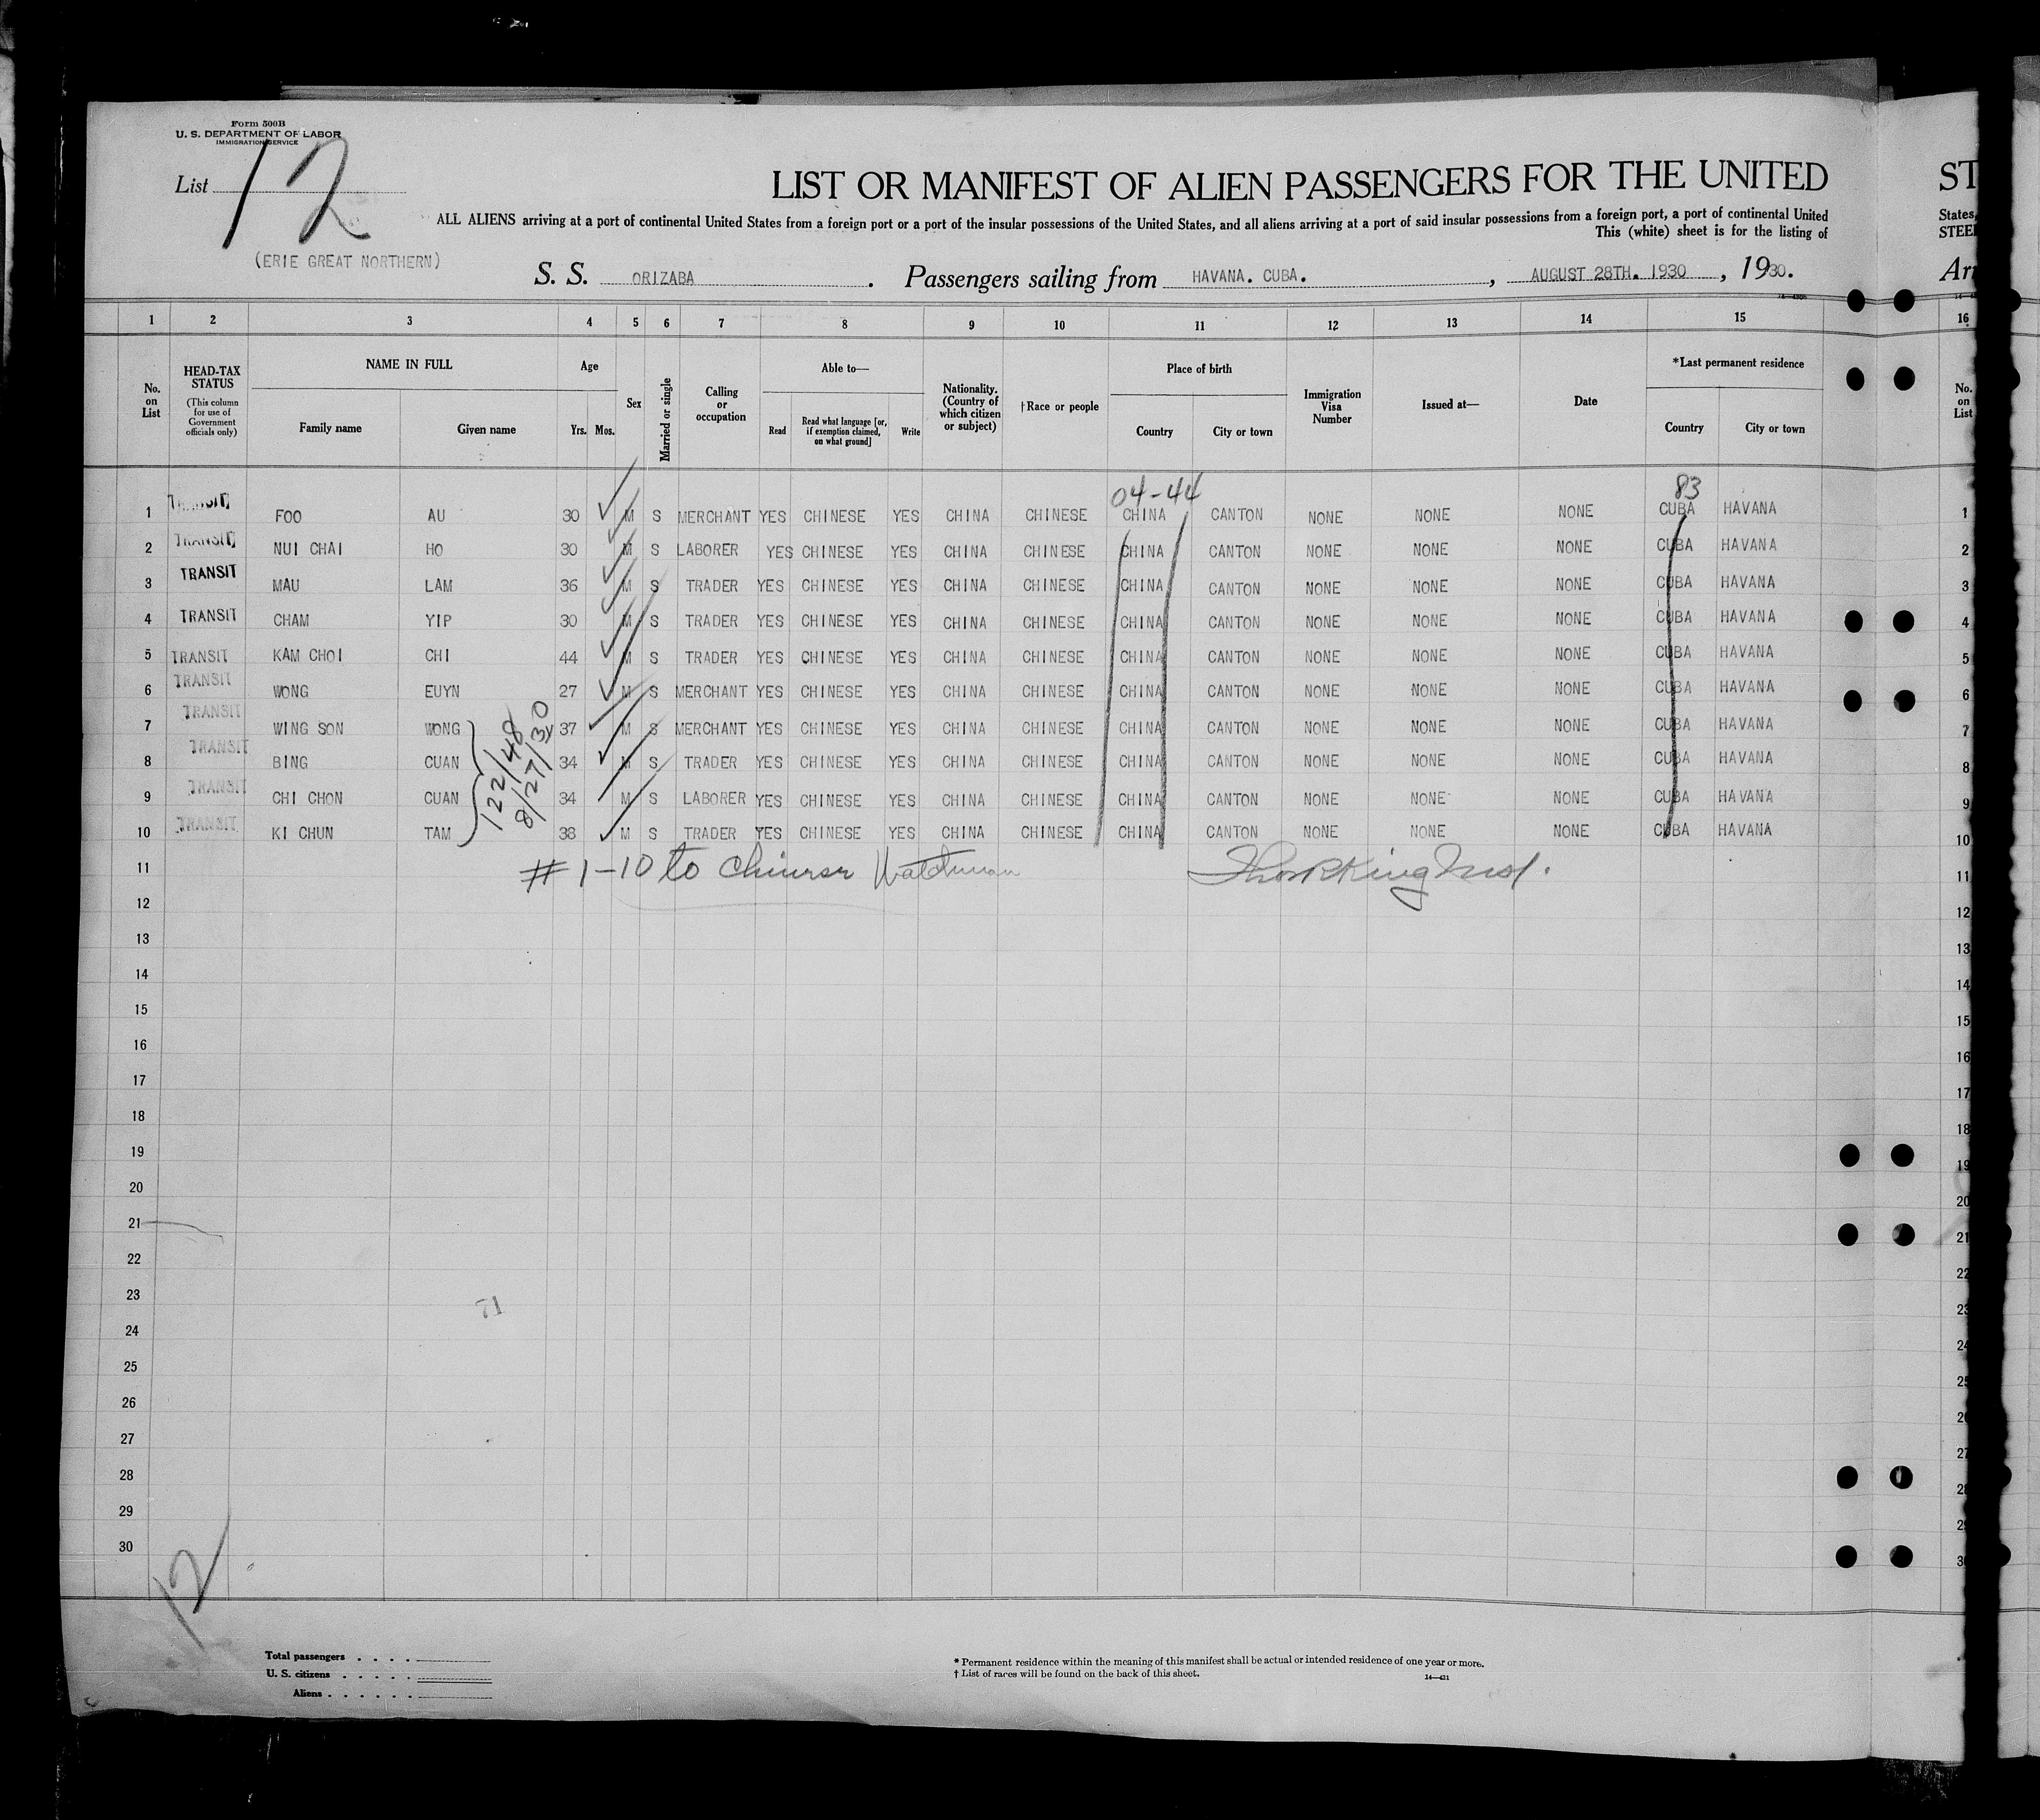 Form 500B
U. S. DEPARTMENT OF LABOR
IMMIGRATION SERVICE
List 12
LIST OR MANIFEST OF ALIEN PASSENGERS FOR THE UNITED
ST
ALL ALIENS arriving at a port of continental United States from a foreign port or a port of the insular possessions of the United States, and all aliens arriving at a port of said insular possessions from a foreign port, a port of continental United
States,
This (white) sheet is for the listing of
STEE
(ERIE GREAT NORTHERN)
S. S. ORIZABA. Passengers sailing from HAVANA. CUBA. , AUGUST 28TH. 1930 , 1930.
1 2 3 4 5 6 7 8 9 10 11 12 13 14 15 16
No. on List
HEAD-TAX STATUS (This column for use of Government officials only)
NAME IN FULL
Family name Given name
Age
Yrs. Mos.
Sex
Married or single
Calling or occupation
Able to—
Read
Read what language [or, if exemption claimed, on what ground]
Write
Nationality. (Country of which citizen or subject)
†Race or people
Place of birth
Country City or town
Immigration Visa Number
Issued at—
Date
*Last permanent residence
Country City or town
No. on List
04-44 83
1 TRANSIT FOO AU 30 M S MERCHANT YES CHINESE YES CHINA CHINESE CHINA CANTON NONE NONE NONE CUBA HAVANA 1
2 TRANSIT NUI CHAI HO 30 M S LABORER YES CHINESE YES CHINA CHINESE CHINA CANTON NONE NONE NONE CUBA HAVANA 2
3 TRANSIT MAU LAM 36 M S TRADER YES CHINESE YES CHINA CHINESE CHINA CANTON NONE NONE NONE CUBA HAVANA 3
4 TRANSIT CHAM YIP 30 M S TRADER YES CHINESE YES CHINA CHINESE CHINA CANTON NONE NONE NONE CUBA HAVANA 4
5 TRANSIT KAM CHOI CHI 44 M S TRADER YES CHINESE YES CHINA CHINESE CHINA CANTON NONE NONE NONE CUBA HAVANA 5
6 TRANSIT WONG EUYN 27 M S MERCHANT YES CHINESE YES CHINA CHINESE CHINA CANTON NONE NONE NONE CUBA HAVANA 6
7 TRANSIT WING SON WONG 37 M S MERCHANT YES CHINESE YES CHINA CHINESE CHINA CANTON NONE NONE NONE CUBA HAVANA 7
8 TRANSIT BING CUAN 34 M S TRADER YES CHINESE YES CHINA CHINESE CHINA CANTON NONE NONE NONE CUBA HAVANA 8
9 TRANSIT CHI CHON CUAN 34 M S LABORER YES CHINESE YES CHINA CHINESE CHINA CANTON NONE NONE NONE CUBA HAVANA 9
10 TRANSIT KI CHUN TAM 38 M S TRADER YES CHINESE YES CHINA CHINESE CHINA CANTON NONE NONE NONE CUBA HAVANA 10
122/48
8/27/30
11 #1-10 to Chinese Watchman 11
12 12
13 13
14 14
15 15
16 16
17 17
18 18
19 19
20 20
21 21
22 22
23 71 23
24 24
25 25
26 26
27 27
28 28
29 29
30 30
12
Total passengers . . . .
U. S. citizens . . . . .
Aliens . . . . . .
* Permanent residence within the meaning of this manifest shall be actual or intended residence of one year or more.
† List of races will be found on the back of this sheet.
14—421